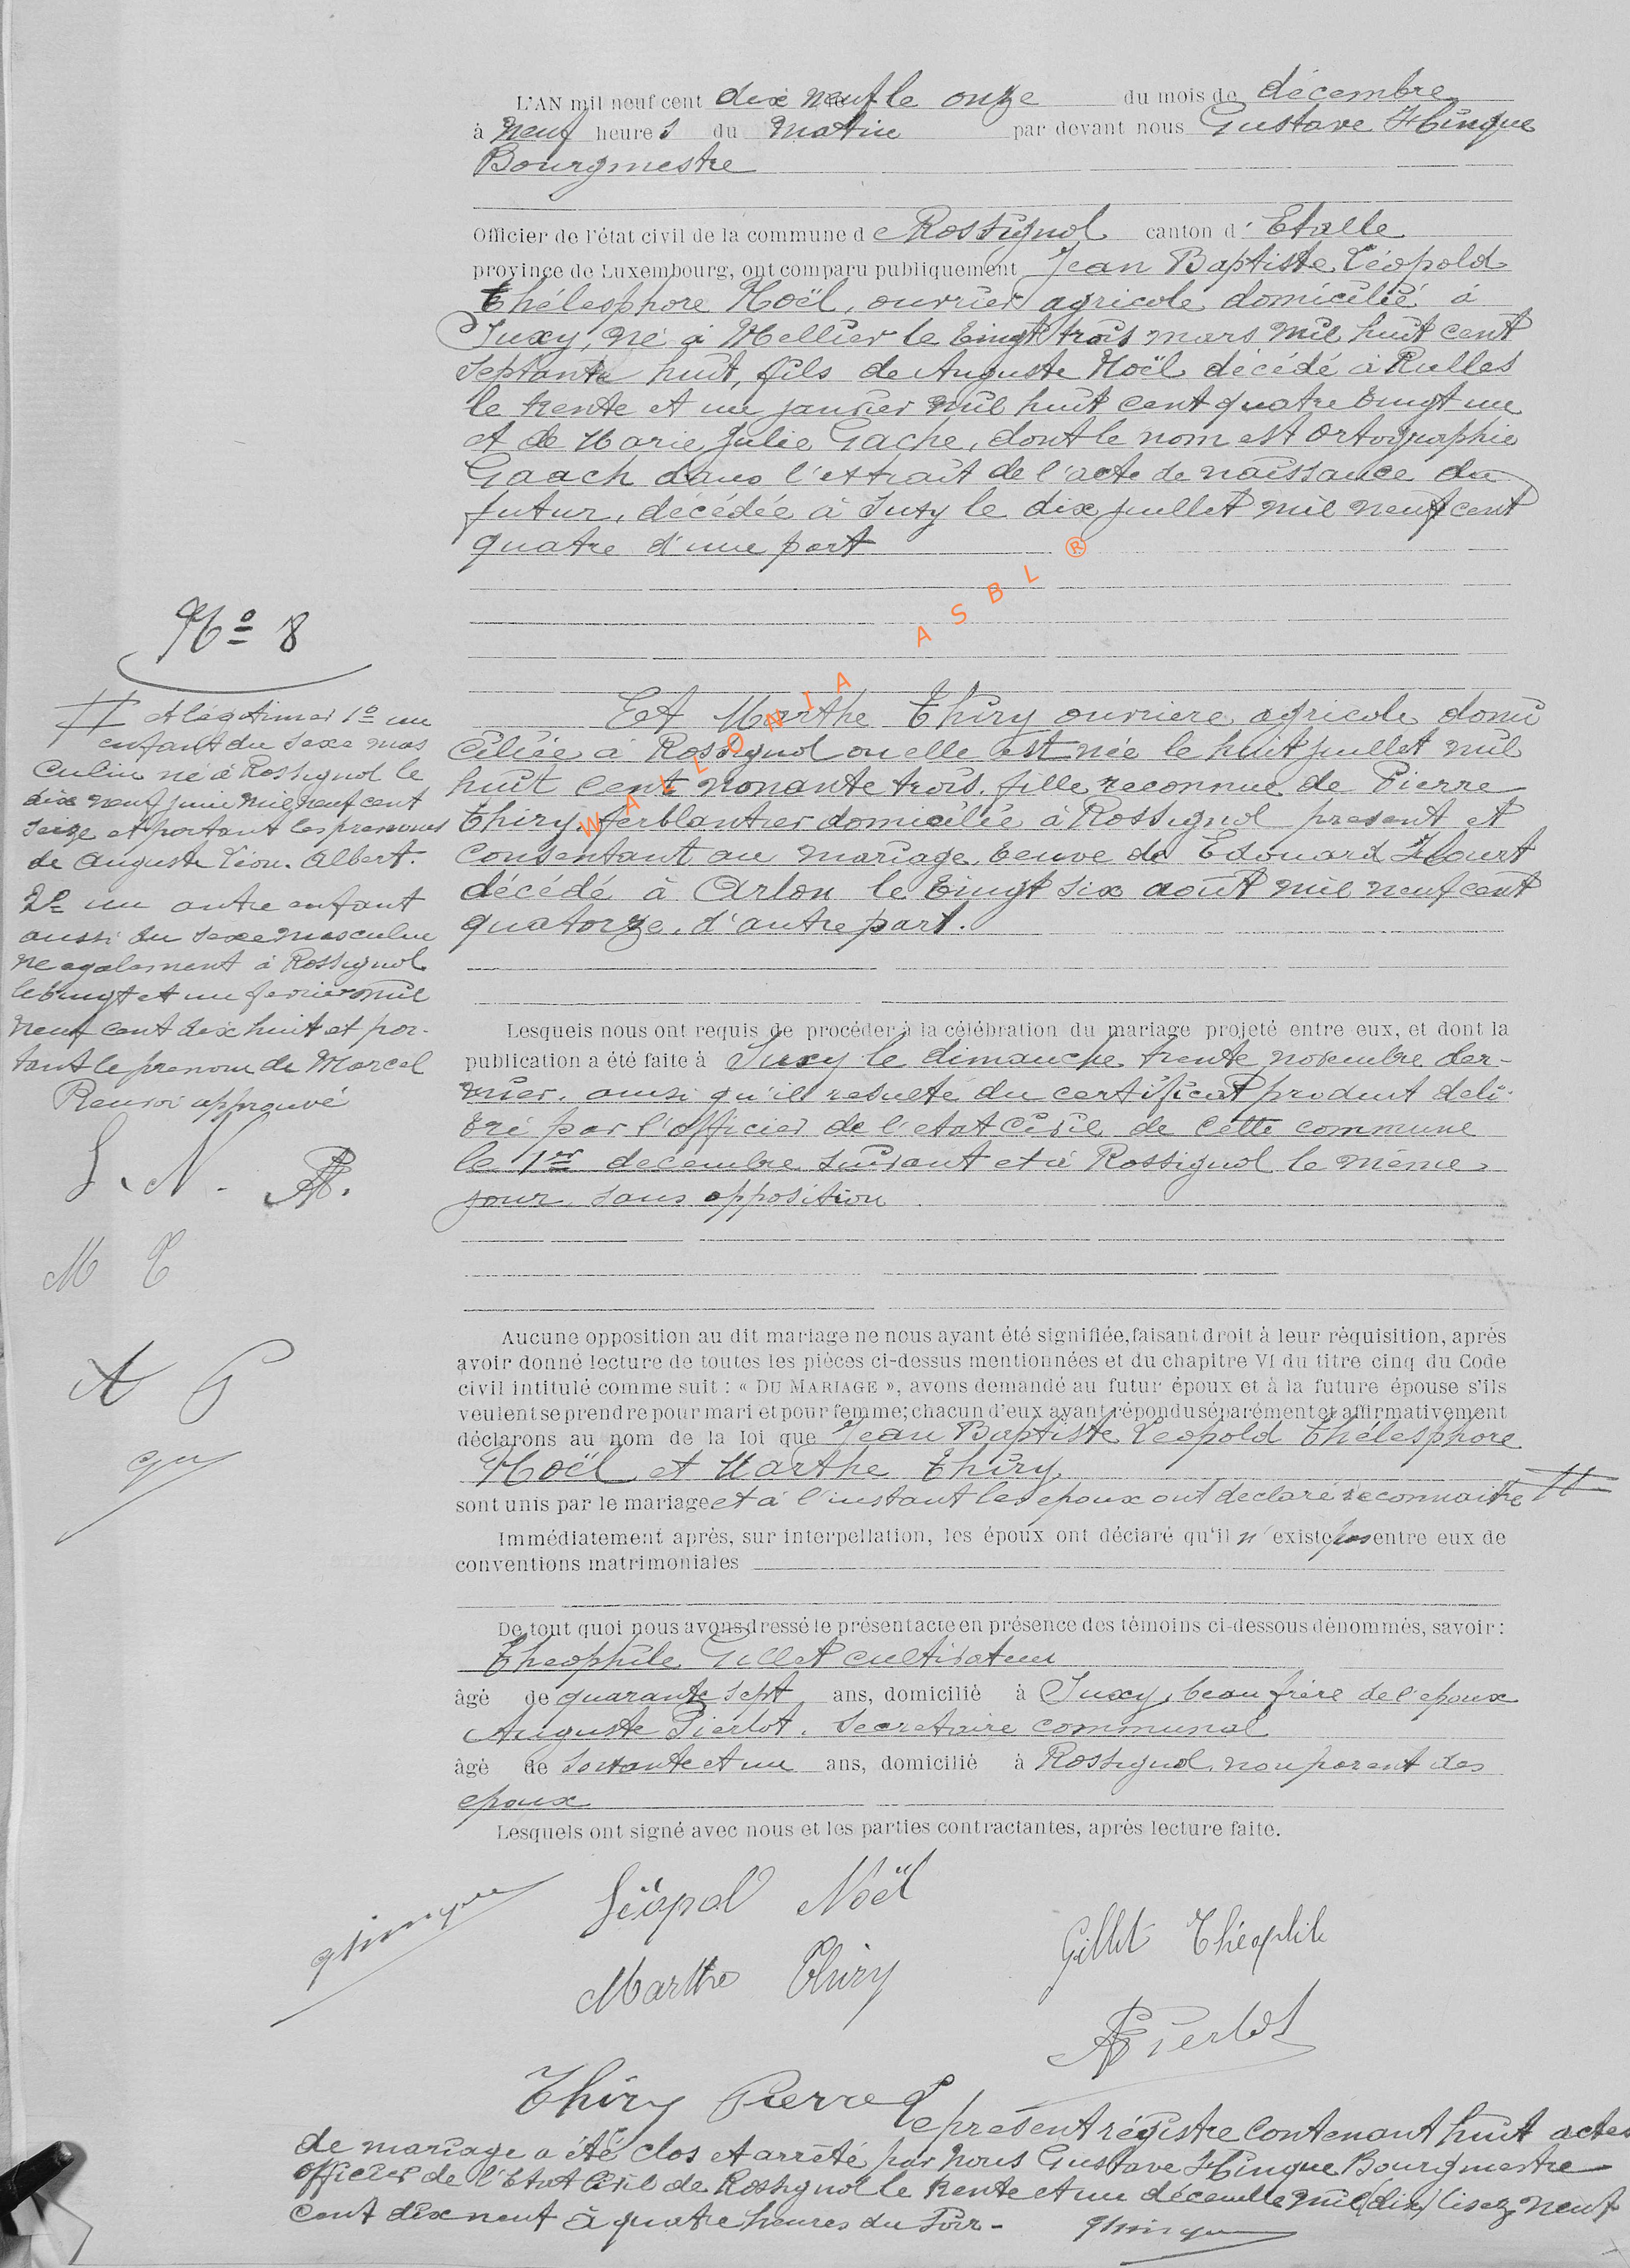 L'AN mil neuf cent dix neuf le onze du mois de décembre
à neuf heures du matin par devant nous Gustave Hinque
Bourgmestre
Officier de l'état civil de la commune de Rossignol canton d' Etalle
province de Luxembourg, ont comparu publiquement Jean Baptiste Léopold
Thélesphore Noël, ouvrier agricole domicilié à
Suxy, né à Mellier le vingt trois mars mil huit cent
septante huit, fils de Auguste Noël décédé à Rulles
le trente et un janvier mil huit cent quatre vingt un
et de Marie Julie Gache, dont le nom est ortographie
Gaach dans l'extrait de l'acte de naissance du
futur, décédée à Suxy le dix juillet mil neuf cent
quatre d'une part
WALLONIA ASBL ®
No 8
Et Marthe Thiry ouvriere agricole domi
ciliée à Rossignol ou elle est née le huit juillet mil
huit cent nonante trois. fille reconnue de Pierre
Thiry, ferblantier domicilié à Rossignol present et
consentant au mariage, veuve de Edouard
décédé à Arlon le vingt six août mil neuf cent
quatorze, d'autre part.
et légitimer 1o un
enfant du sexe mas
culin né à Rossignol le
dix neuf juin mil neuf cent
seize et portant les prenoms
de Auguste Léon. Albert.
2o un autre enfant
aussi du sexe masculin
ne egalement à Rossignol
le vingt et un fevrier mil
neuf cent dix huit et por-
tant le prenom de Marcel
Renvoi approuvé
L. N. AP.
M T
T G
Lesquels nous ont requis de procéder à la célébration du mariage projeté entre eux, et dont la
publication a été faite à Suxy le dimanche trente novembre der-
nier. ainsi qu'il resulte du certificat produit deli-
vré par l'officier de l'etat civil de cette commune
le 1er decembre suivant et à Rossignol le même
jour, sans opposition
Aucune opposition au dit mariage ne nous ayant été signifiée, faisant droit à leur réquisition, après
avoir donné lecture de toutes les pièces ci-dessus mentionnées et du chapitre VI du titre cinq du Code
civil intitulé comme suit : « DU MARIAGE », avons demandé au futur époux et à la future épouse s'ils
veulent se prendre pour mari et pour femme; chacun d'eux ayant répondu séparément et affirmativement
déclarons au nom de la loi que Jean Baptiste Leopold Thélesphore
Noël et Marthe Thiry
sont unis par le mariage et à l'instant les epoux ont declaré reconnaitre
Immédiatement après, sur interpellation, les époux ont déclaré qu'il n'existe pas entre eux de
conventions matrimoniales
De tout quoi nous avons dressé le présent acte en présence des témoins ci-dessous dénommés, savoir :
Theophile Gillet cultivateur
âgé de quarante sept ans, domicilié à Suxy, beau frère de l'epoux
Auguste Pierlot. Secretaire communal
âgé de soixante et un ans, domicilié à Rossignol, non parent des
epoux
Lesquels ont signé avec nous et les parties contractantes, après lecture faite.
GHinque Léopold Noël
Gillet Théophile
Marthe Thiry
APierlot
Thiry Pierre
Le present régistre contenant huit actes
de mariage a été clos et arrêté par nous Gustave Hinque Bourgmestre
officier de l'Etat Civil de Rossignol le trente et un décembre mil (dix) lisez neuf
cent dix neuf à quatre heures du soir - GHinque